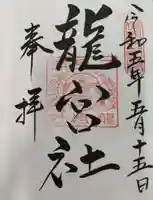 令和五年五月十五日
龍宮社
奉拝